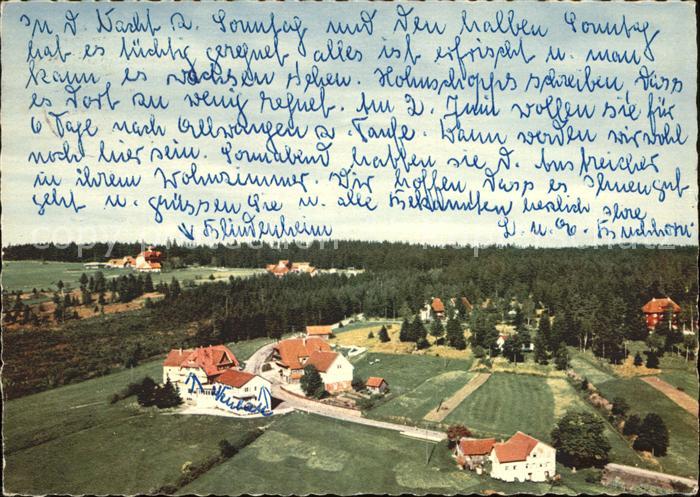 In d. Nacht z. Sonntag und den halben Sonntag
hat es tüchtig geregnet alles ist erfrischt u. man
kann es wachsen sehen. schreiben, dass
es dort zu wenig regnet. Am 2. Juni wollen sie für
6 Tage nach Ellwangen z. Taufe. Wann werden wir wohl
noch hier sein. Sonnabend hatten sie d. Anstreicher
in ihrem Wohnzimmer. Wir hoffen dass es Ihnen gut
geht u. grüssen Sie u. alle Bekannten herzlich Ihre
Blindenheim
L. u.
Neubau